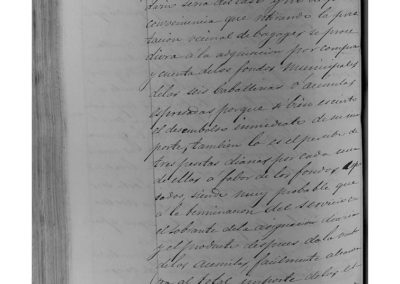 conveniencia que retirando la pres
tacion vecinal de bagajes se proce
diera à la adquisicion por compra
y cuenta de los fondos municipales
de las seis caballerias o acemilas
expresadas porque si bien es cierto
el desembolso inmediato de su im
porte, tambien lo es el percibo de
tres pesetas diarias por cada una
de ellas a favor de los fondos
sados, siendo muy probable que
a la terminacion del servicio
el sobrante de la asignacion diaria
y el producto despues de la venta
de las acemilas facilmente
el total importe de los